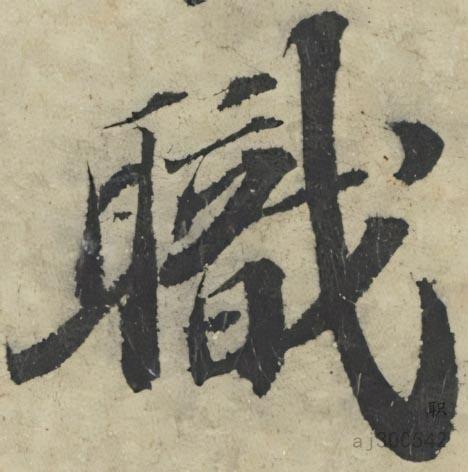 職
职
aj300342